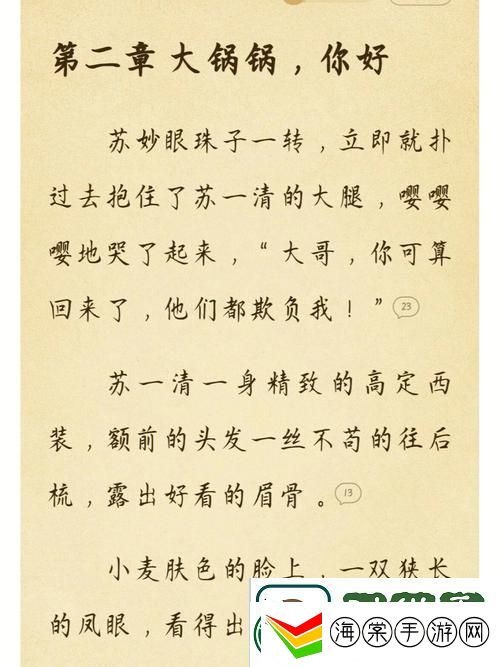 第二章 大锅锅，你好
苏妙眼珠子一转，立即就扑
过去抱住了苏一清的大腿，嘤嘤
嘤地哭了起来，“大哥，你可算
回来了，他们都欺负我！”
23
苏一清一身精致的高定西
装，额前的头发一丝不苟的往后
梳，露出好看的眉骨。
13
小麦肤色的脸上，一双狭长
的凤眼，看得出
海棠手游网